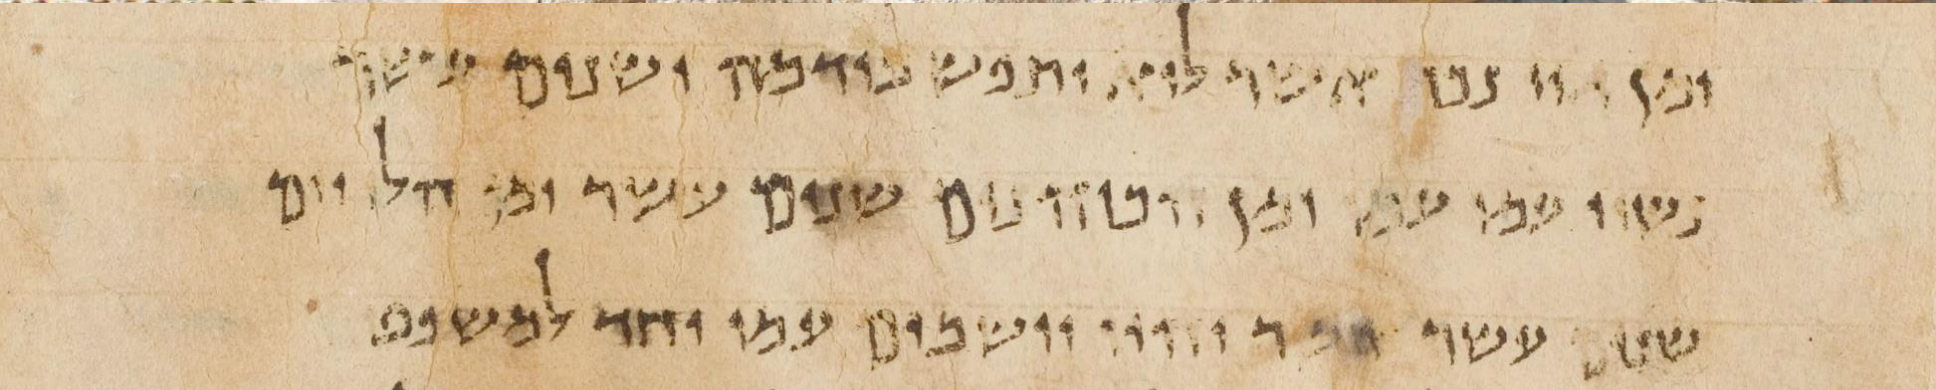 ומן גוי נכר אשר לוא יתפש בידמה ושנים עשר
נשיי עמו עמו ומן הכוהנים שנים עשר ומן הלויים
שנים עשר אשר יהיו יושבים עמו יחד למשפט